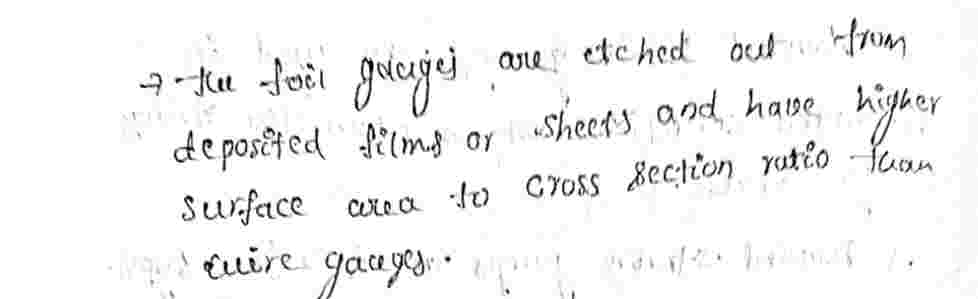 → The foil gauges are etched out from
deposited films or sheets and have higher
surface area to cross section ratio than
wire gauges.